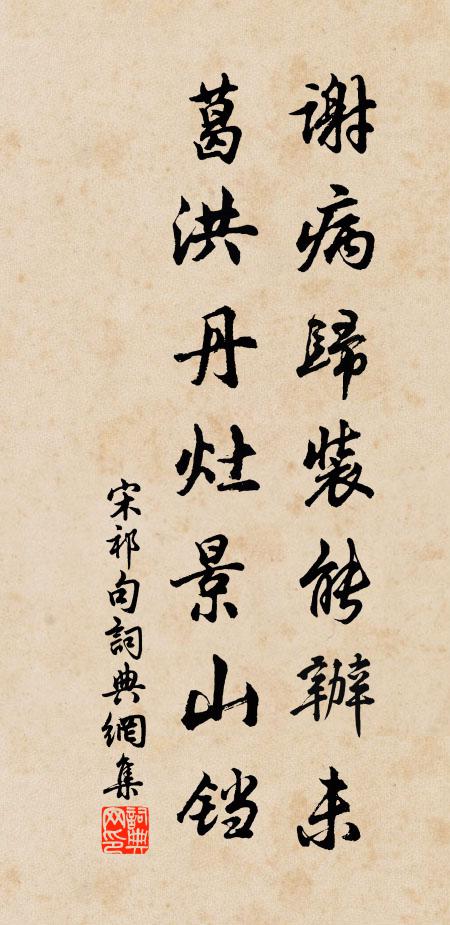 謝病歸裝能辦未
葛洪丹灶景山铛
宋祁句詞典網集
詞典
网印